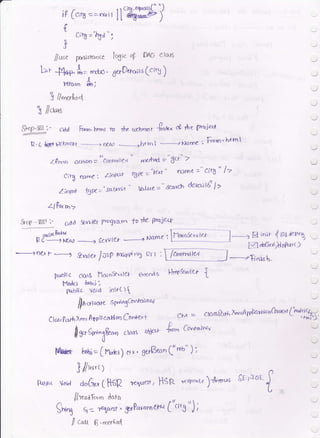 if (city == null || city.equals(" "))
{
city = "hyd";
}
//use persistence logic of DAO class
List <Map> lm = mdao.getDetails(city);
return lm;
} //method
} //class
Step-III :- add Form.html to the webroot folder of the project
R.C webroot → new → html → Name : Form.html
<form action = "controller" method = "get">
City name : <input type = "text" name = "city"/>
<input type = "submit" value = "search details"/>
</form>
Step-IV :- add servlet program to the project
RC → New → servlet → Name : MainServlet → init() destroy
doGet() doPost()
→ next → Servlet / JSP mapping url : /controller → Finish.
public class MainServlet extends HttpServlet {
public void init() {
//Activate SpringContainer
ClassPathXmlApplicationContext ctx =
//get SpringBean class object from Container
ctx.getBean("mb");
} //init()
Public void doGet (HSR request, HSR response) throws SE, IOE {
//read form data
String s1 = request.getParameter("city");
// call B.method